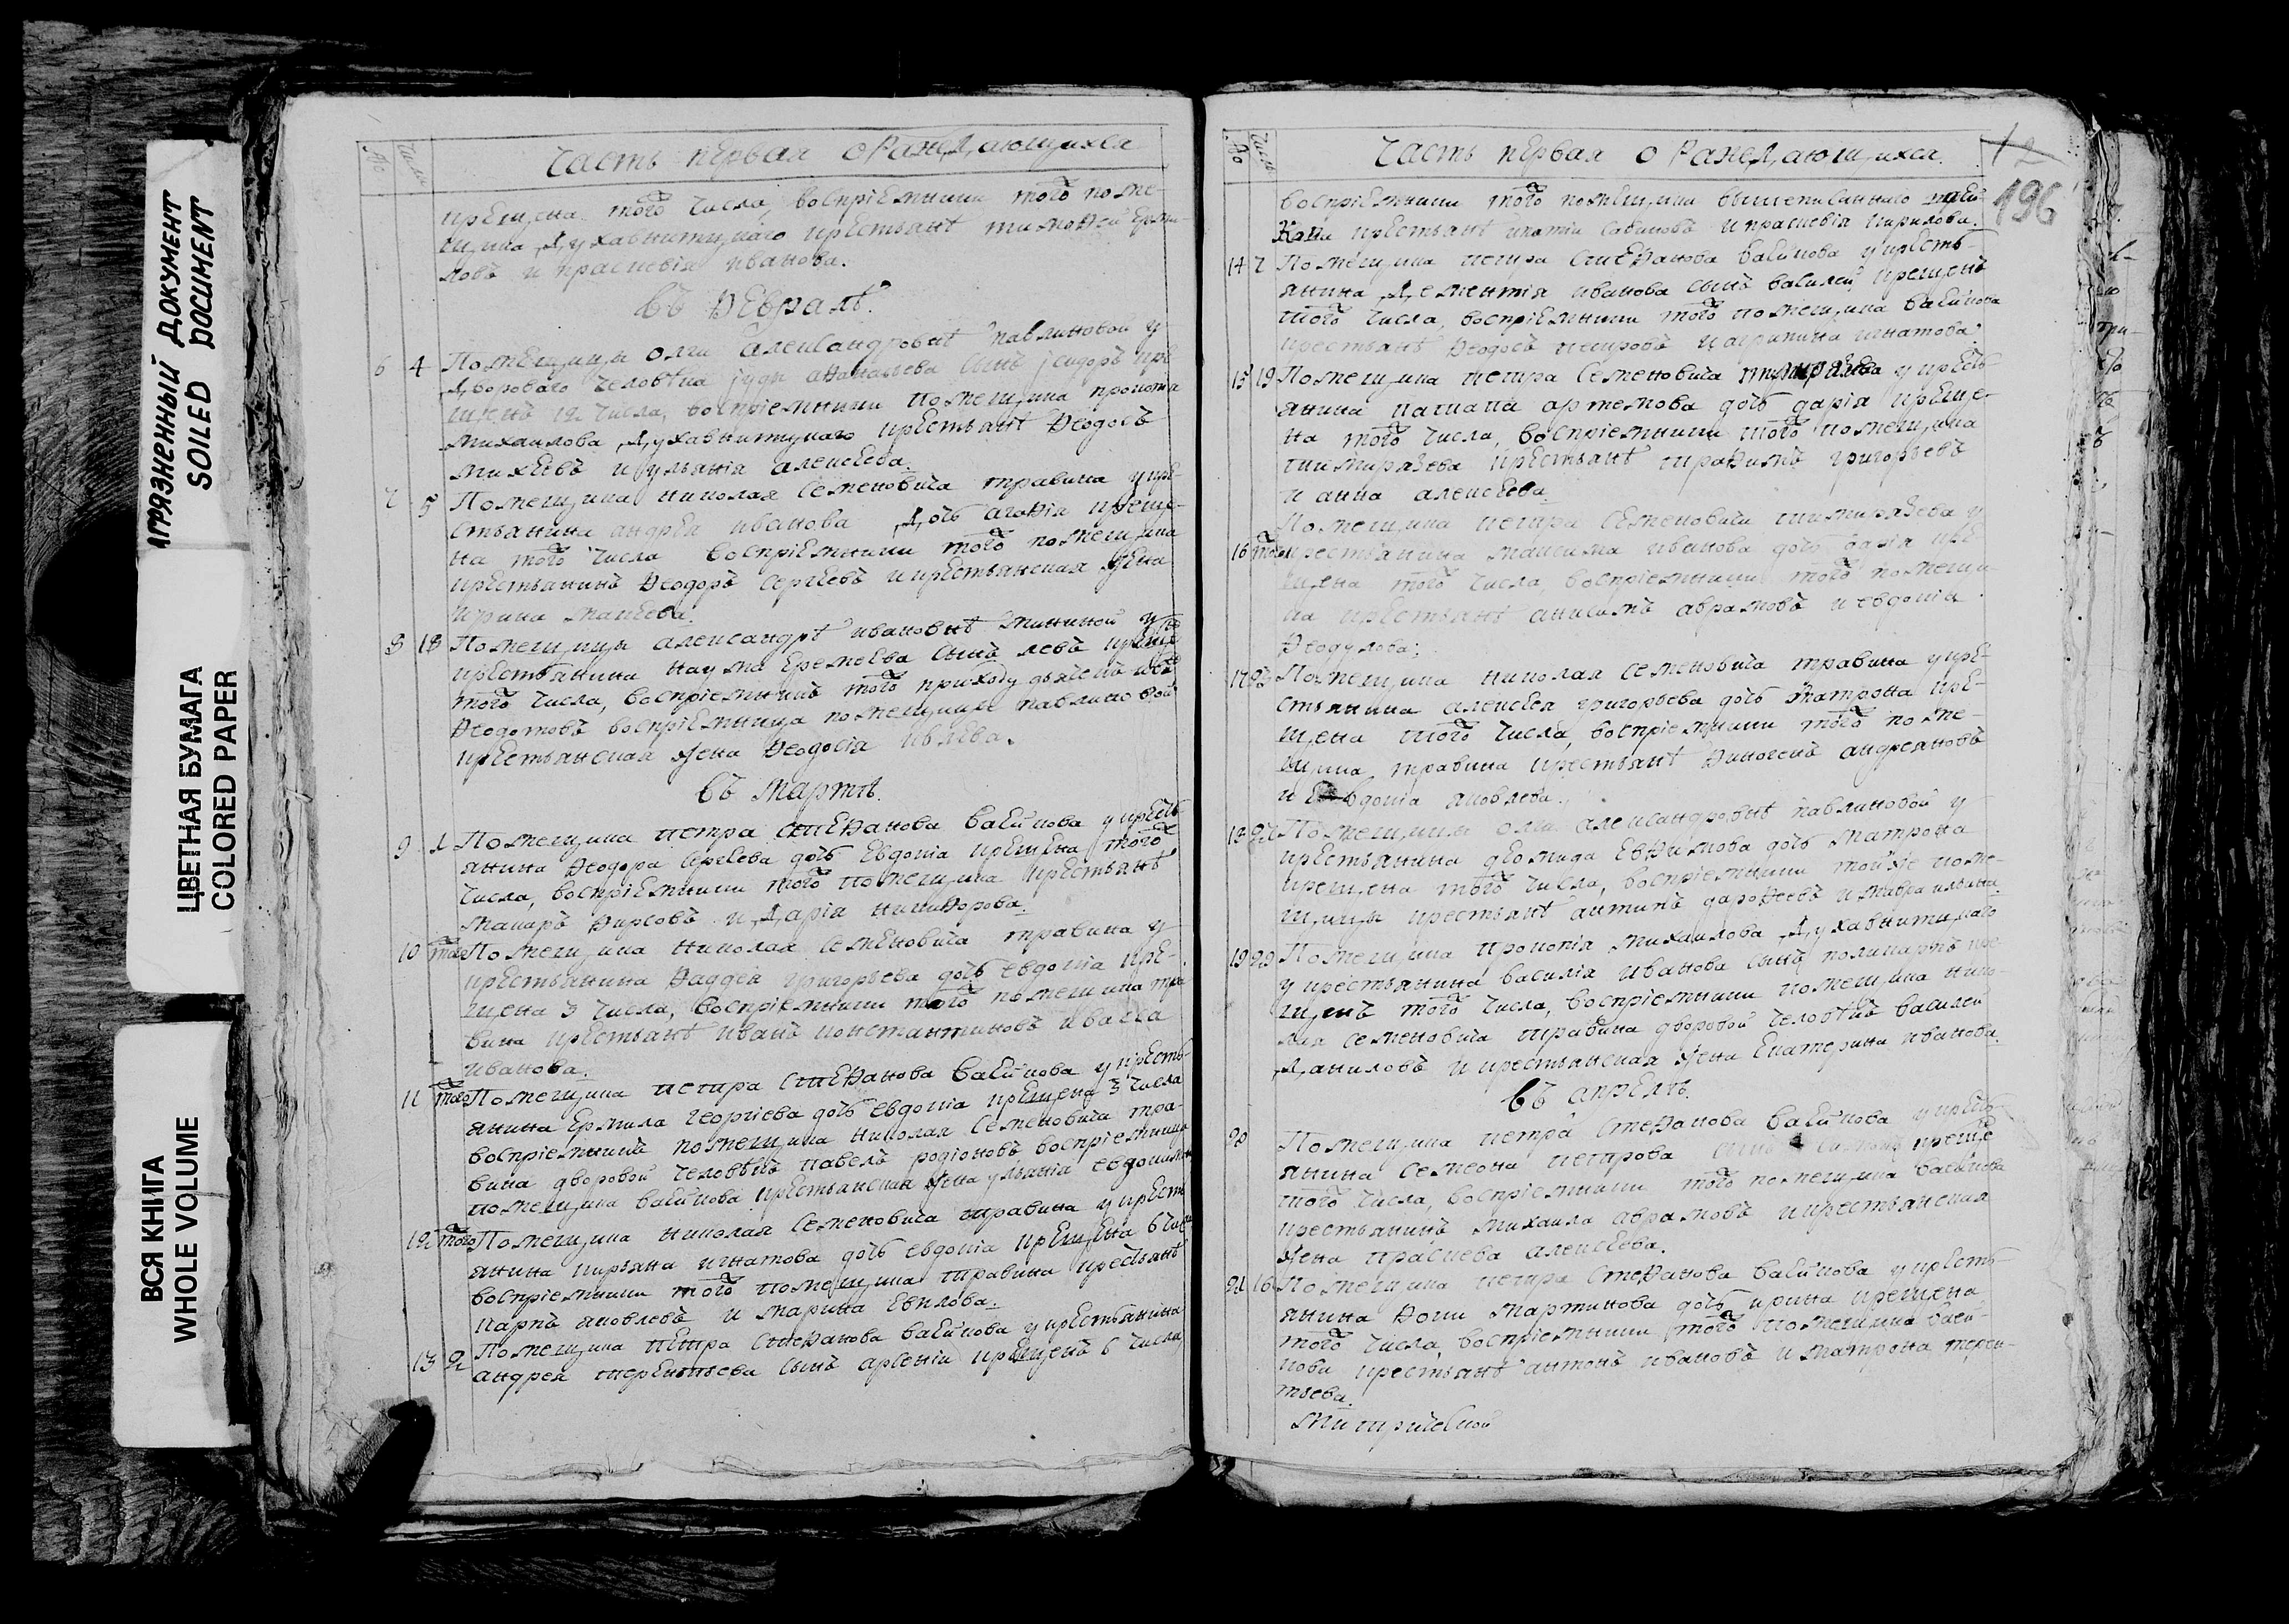 ЗАГРЯЗНЕННЫЙ ДОКУМЕНТ
SOILED DOCUMENT
ЦВЕТНАЯ БУМАГА
COLORED PAPER
ВСЯ КНИГА
WHOLE VOLUME
№ Число
Часть первая о Раждающихся
крещена того числа, воспрiемники того поме-
щика Духавнитцкаго крестьянѣ тимофеи
ловъ и праскевiя иванова.
въ Ѳевралѣ.
6 4 Помещицы олги александровнѣ павлиновой у
дворового человѣка iуды аѳанасьева сынъ iсидоръ кре
щенъ 12 числа, воспрiемники помещика прокопiя
михаилова Духавнитцкаго крестьянѣ Ѳеодосѣ
михѣевъ и ульянiя алексѣева.
7 5 Помещика николая семеновича травина у кре-
стьянина андрея иванова дочь агаѳiя креще-
на того числа воспрiемники того помещика
крестьянинъ Ѳеодоръ сергѣевъ и крестьянская жена
ирина макѣева.
8 18 Помещицы александрѣ ивановнѣ мининой у
крестьянина наума еремѣева сынъ левъ креще
того числа, воспрiемникъ того приходу дьячекъ
Ѳеодотовъ воспрiемница помещицы павлиновой
крестьянская жена Ѳеодосiя ивлева.
въ мартѣ.
9 1 Помещика петра стеѳанова васикова у кресть
янина Ѳеодора сергѣева дочь евдокiя крещена того
числа, воспрiемники того помещика крестьянѣ
макаръ Ѳирсовъ и Дарiя никиѳорова.
10 того Помещика николая семеновича травина у
крестьянина Ѳаддея григорьева дочь евдокiя кре-
щена 3 числа, воспрiемники того помещика тра
вина крестьянѣ иванъ константиновъ и васса
иванова.
11 того Помещика петра стеѳанова васикова у кресть-
янина ермила георгiева дочь евдокiя крещена 3 числа
воспрiемникъ помещика николая семеновича тра-
вина дворовой человѣкъ павелъ родiоновъ воспрiемница
помещика васикова крестьянская жена ульянiя
12 того Помещика николая семеновича травина у кресть
янина кирьяна игнатова дочь евдокiя крещена 6 числа
воспрiемники того помещика травина крестьянѣ
карпъ яковлевъ и марина
13 2 Помещика петра стеѳанова васикова у крестьянина
андрея терентьева сынъ арсенiи крещенъ 6 числа,
№ Число
Часть первая о Раждающихся.
12
196
воспрiемники того помещика вышеписаннаго
крестьянѣ ипатiи савиновъ и праскевiя кирилова.
14 7 Помещика петра стеѳанова васикова у кресть-
янина Дементiя иванова сынъ василей крещенъ
того числа, воспрiемники того помещика васикова
крестьянѣ Ѳеодосѣ петровъ и агрипина игнатова.
15 19 Помещика петра семеновича тимирязева у кресть
янина патапа артемова дочь дарiя креще-
на того числа, воспрiемники того помещика
тимирязева крестьянѣ траѳимъ григорьевъ
и анна алексѣева.
Помещика петра семеновича тимирязева у
16 того крестьянина максима иванова дочь дарiя кре
щена того числа, воспрiемники того помещи-
ка крестьянѣ анисимъ абрамовъ и евдокiя
Ѳедулова.
17 Помещика николая семеновича травина у кре-
стьянина алексѣя григорьева дочь матрона кре-
щена того числа, воспрiемники того поме-
щика травина крестьянѣ Ѳиногенъ андреяновъ
и Евдокiя яковлева.
18 Помещицы олги александровнѣ павлиновой у
крестьянина деомида евѳимова дочь матрона
крещена того числа, воспрiемники той же поме-
щицы крестьянѣ антипъ дароѳеевъ и мавра ильина.
19 29 Помещика прокопiя михаилова Духавнитцкаго
у крестьянина василiя иванова сынъ поликарпъ кре
щенъ того числа, воспрiемники помещика нико
лая семеновича травина дворовой человѣкъ василеи
Даниловъ и крестьянская жена екатерина иванова.
въ апрѣлѣ.
20 Помещика петра стеѳанова васикова у кресть
янина семеона петрова сынъ креще
того числа, воспрiемники того помещика васикова
крестьянинъ михаила абрамовъ и крестьянская
жена праскева алексѣева.
21 16 Помещика петра стеѳанова васикова у кресть-
янина Ѳоки мартинова дочь ирина крещена
того числа, воспрiемники того помещика васи-
кова крестьянѣ антонъ ивановъ и матрона терен-
тьева.